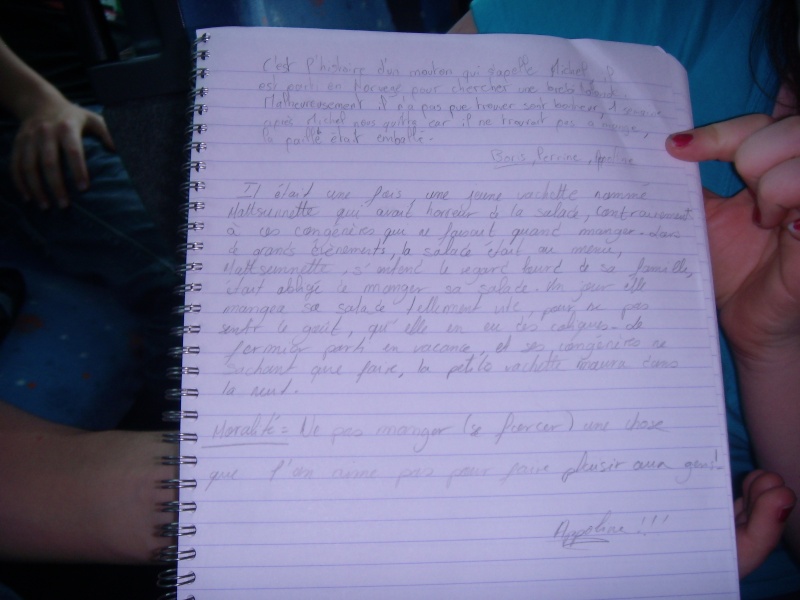 C'est l'histoire d'un mouton qui s'apelle Michel. Il
est parti en Norvege pour chercher une
Malheureusement, il n'a pas pue trouver sont bonheur, 1 semaine
après Michel nous quitta car il ne trouvait pas a manger,
la paille était emballé.
Boris, Perrine, Apoline
Il était une fois une jeune vachette nommé
Mattseunnette qui avait horreur de la salade, contrairement
à ces congénères qui ne faisait quand manger. Lors
de grands évènements, la salade était au menu,
Mattseunnette, s' le regard lourd de sa famille,
était obligé de manger sa salade. Un jour elle
mangea sa salade tellement vite, pour ne pas
sentir le goût, qu'elle en eu des coliques. Le
fermier parti en vacance, et ses congénères ne
sachant que faire, la petite vachette mouru dans
la nuit.
Moralité = Ne pas manger (se forcer) une chose
que l'on aime pas pour faire plaisir aux gens!
Appoline!!!